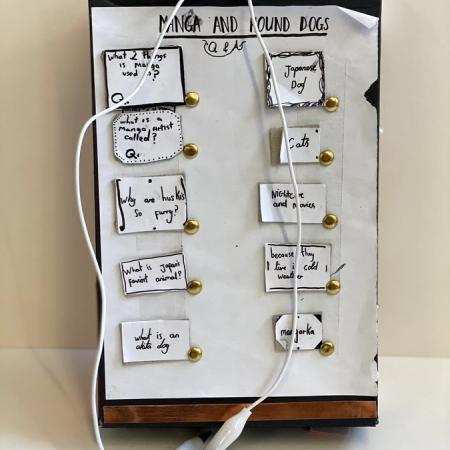 MANGA AND HOUND DOGS
Q & A's
What 2 things
is manga
used ?
Q.
what is a
Manga artist
called?
Q.
Why are huskis
so furry?
What is Japan's
favorist animal?
what is an
akita dog
Japanese
Dog
Cats
and movies
because they
live in cold
weather
mangarka